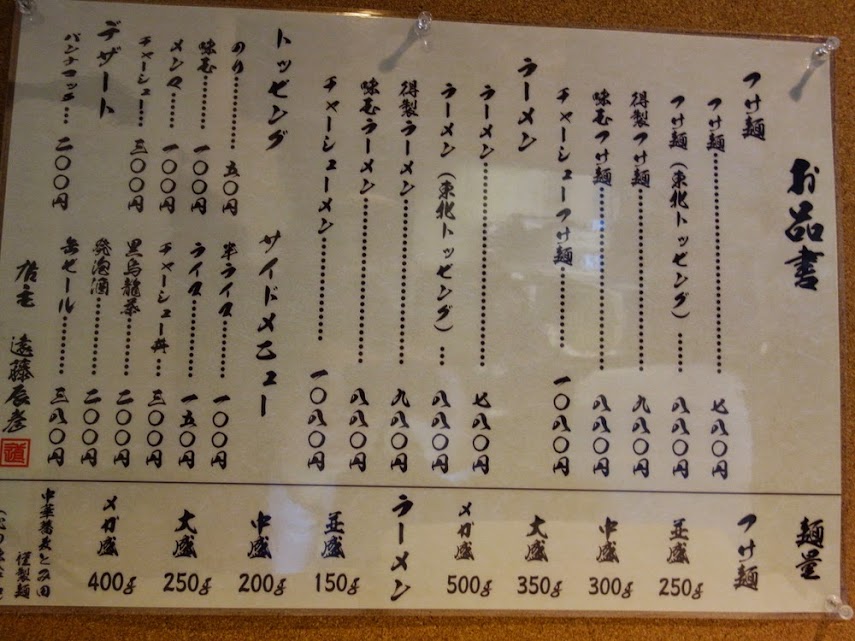 お品書
つけ麺
つけ麺……………七八〇円
つけ麺（東北トッピング）…八八〇円
得製つけ麺……………九八〇円
味玉つけ麺……………八八〇円
チャーシューつけ麺……一〇八〇円
ラーメン
ラーメン……………七八〇円
ラーメン（東北トッピング）…八八〇円
得製ラーメン……………九八〇円
味玉ラーメン……………八八〇円
チャーシューメン………一〇八〇円
トッピング
のり………五〇円
味玉………一〇〇円
メンマ……一〇〇円
チャーシュー…三〇〇円
デザート
パンナコッタ…二〇〇円
サイドメニュー
半ライス……一〇〇円
ライス………一五〇円
チャーシュー丼…三〇〇円
黒烏龍茶……二〇〇円
発泡酒………二〇〇円
缶ビール……三八〇円
店主 遠藤辰彦
麺量
つけ麺
並盛 250g
中盛 300g
大盛 350g
メガ盛 500g
ラーメン
並盛 150g
中盛 200g
大盛 250g
メガ盛 400g
中華蕎麦とみ田
謹製麺